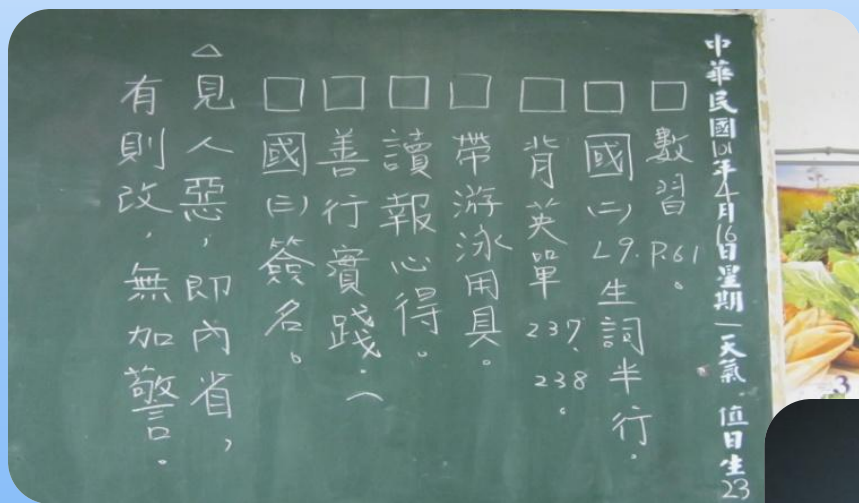 中華民國101年4月16日星期一天氣 值日生23
□數習P.61。
□國(二)L9.生詞半行.
□背英單237、238。
□帶游泳用具。
□讀報心得。
□善行實踐.(
□國(三)簽名。
△見人惡,即內省,
有則改,無加警.
3